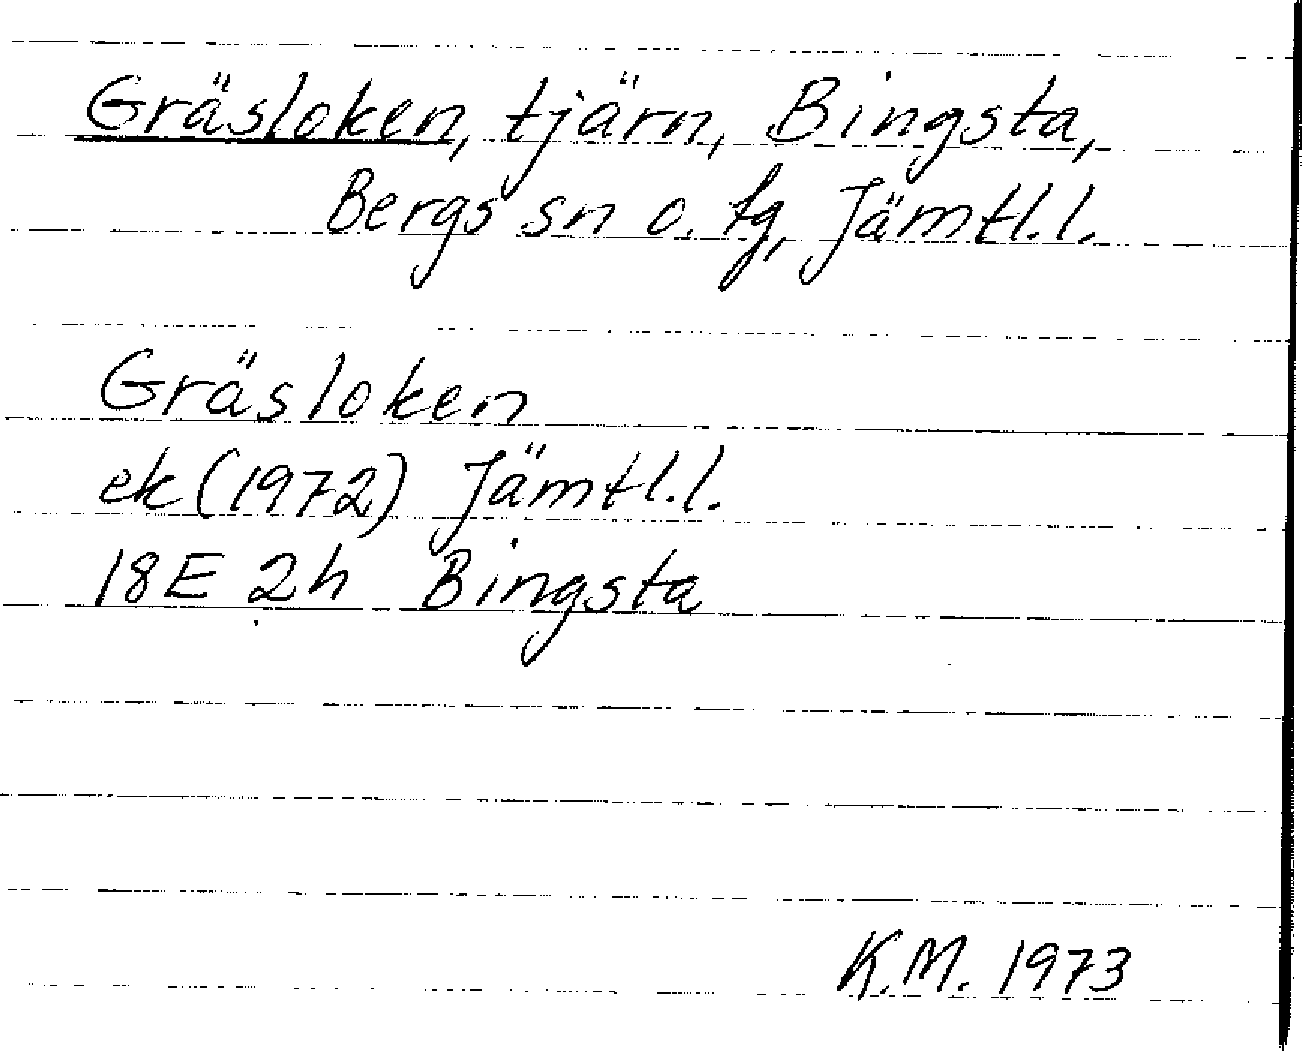 Gräsloken, tjärn, Bingsta,
Bergs sn o. tg, Jämtl.l.
Gräsloken
ek (1972) Jämtl.l.
18E 2h Bingsta
K.M. 1973